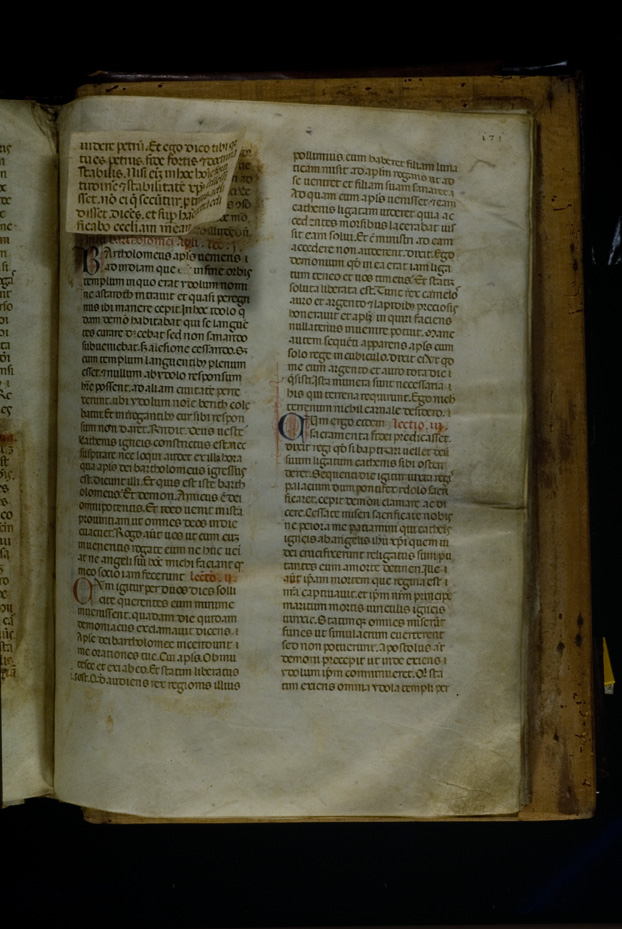 uidere petrū. Et ego dico tibi q̄
tu es petrus. fide fortis ⁊ doctrina
stabilis. Nisi eū in hoc
tudine ⁊ stabilitate xp̄i
sset. nō ei q̄ secūtur
disset dicēs. et sup hāc
ficabo eccliam meam
bartholomei apli. lec. i.
Bartholomeus apls uemens i
ad indiam que in fine orbis
templum in quo erat ydolum nomi
ne astaroth intrauit et quasi peregri
nus ibi manere cepit. In hoc ydolo q
dam demō habitabat qui se langue
tes curare dicebat sed non sanando
subueniebat. s; a lesione cessando. Et
cum templum languentibus plenum
esset. ⁊ nullum ab ydolo responsum
hr̄e possent. ad aliam ciuitatē perre
xerunt. ubi ydolum noīe berith cole
batur. Et interogantibus cur sibi respon
sum non daret. Rn̄dit. Deus ur̄ste
cathenis igneis constrictus est. nec
suspirare nec loqui audet ex illa hora
qua apls dei bartholomeus igressus
est. dicunt illi. Et quis est iste barth
olomeus. Et demon. Amicus ē dei
omnipotentis. Et ideo uenit in ista
prouintiam ut omnes deos indie
euacuet. Rogo aūt uos ut cum eum
inueneritis rogate eum ne huc ueī
at ne angeli sui hoc michi faciant q
meo socio iam fecerunt. lectio. ii.
Cum igitur per duos dies solli
cite querentes eum minime
inuenissent. quadam die quidam
demoniacus exclamauit dicens.
Apl̄e dei bartholomee incendunt
me orationes tue. Cui apl̄s. Obmu
tesce et exi ab eo. Et statim liberatus
est. Qd audiens rex regionis illius
pollimius. cum haberet filiam luna
ticam misit ad aplm rogans ut ad
se ueniret et filiam suam sanaret.
Ad quam cum apls uenisset ⁊ eam
cathenis ligatam uideret quia ac
cedentes morsibus lacerabat ius
sit eam solui. Et cū ministri ad eam
accedere non auderent. dixit. Ego
demonium qd in ea erat iam liga
tum teneo et uos timetis. Et statī
soluta liberata est. Tunc rex camelos
auro et argento ⁊ lapidibus preciosis
honerauit et aplm inquiri faciens
nullatenus inuenire potuit. Mane
autem sequēti apparens apls cum
solo rege in cubiculo. dixit ei. Vt qd
me cum argento et auro tota die
q̄sisti. Ista munera sunt necessaria
his qui terrena requirunt. Ego nich
terrenum nichil carnale desidero.
Cum ergo eidem lectio. iii.
sacramenta fidei predicasset.
dixit regi qd si baptizari uellet deū
suum ligatum cathenis sibi osten
deret. Sequenti die igitur iuxta regis
palacium dum pontifex ydolo sacri
ficaret. cepit demōn clamare ac di
cere. Cessate miseri sacrificare nobis
ne peiora me patiamini qui cathenis
igneis ab angelis ihu xpi quem iu
dei crucifixerunt religatus sum pu
tantes eum a morte detineri. que
aūt ip̄am mortem que regina est
nr̄a captiuauit. et ip̄m nr̄m principē
maritum mortis uinculis igneis
uinxit. Statim q̄ omnes miserūt
funes ut simulacrum euerterent
sed non potuerunt. Apostolus aūt
demoni precepit ut inde exiens
ydolum ip̄m comminueret. Qui sta
tim exiens omnia ydola templi per